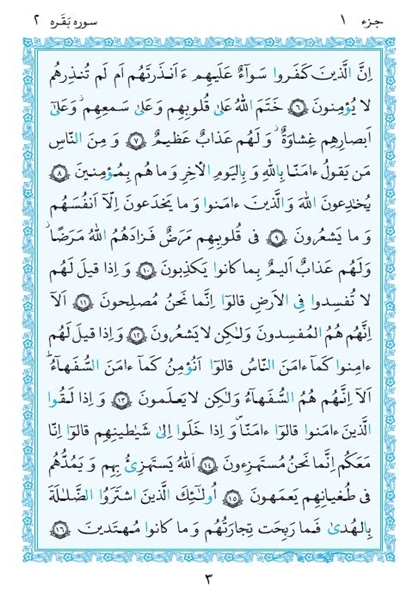 جزء ١ سوره بَقَره ٢
اِنَّ الَّذينَ كَفَروا سَوآءٌ عَلَيهِم ءَاَنذَرتَهُم اَم لَم تُنذِرهُم
لا يُؤمِنونَ ٦ خَتَمَ اللهُ عَلىٰ قُلوبِهِم وَ عَلىٰ سَمعِهِم ۖ وَ عَلىٰٓ
اَبصارِهِم غِشاوَةٌ ۖ وَ لَهُم عَذابٌ عَظيمٌ ٧ وَ مِنَ النّاسِ
مَن يَقولُ ءامَنّا بِاللهِ وَ بِاليَومِ الأخِرِ وَ ما هُم بِمُؤمِنينَ ٨
يُخٰدِعونَ اللهَ وَ الَّذينَ ءامَنوا وَ ما يَخدَعونَ اِلّآ اَنفُسَهُم
وَ ما يَشعُرونَ ٩ فى قُلوبِهِم مَرَضٌ فَزادَهُمُ اللهُ مَرَضًا ۖ
وَ لَهُم عَذابٌ اَليمٌ بِما كانوا يَكذِبونَ ١٠ وَ اِذا قيلَ لَهُم
لا تُفسِدوا فِى الاَرضِ قالوٓا اِنَّما نَحنُ مُصلِحونَ ١١ اَلآ
اِنَّهُم هُمُ المُفسِدونَ وَ لٰكِن لا يَشعُرونَ ١٢ وَ اِذا قيلَ لَهُم
ءامِنوا كَمآ ءامَنَ النّاسُ قالوٓا اَنُؤمِنُ كَمآ ءامَنَ السُّفَهآءُ ۗ
اَلآ اِنَّهُم هُمُ السُّفَهآءُ وَ لٰكِن لا يَعلَمونَ ١٣ وَ اِذا لَقُوا
الَّذينَ ءامَنوا قالوٓا ءامَنّا وَ اِذا خَلَوا اِلىٰ شَيٰطينِهِم قالوٓا اِنّا
مَعَكُم اِنَّما نَحنُ مُستَهزِءونَ ١٤ اَللهُ يَستَهزِئُ بِهِم وَ يَمُدُّهُم
فى طُغيانِهِم يَعمَهونَ ١٥ اُولٰٓئِكَ الَّذينَ اشتَرَوُا الضَّلٰلَةَ
بِالهُدىٰ فَما رَبِحَت تِجارَتُهُم وَ ما كانوا مُهتَدينَ ١٦
٣